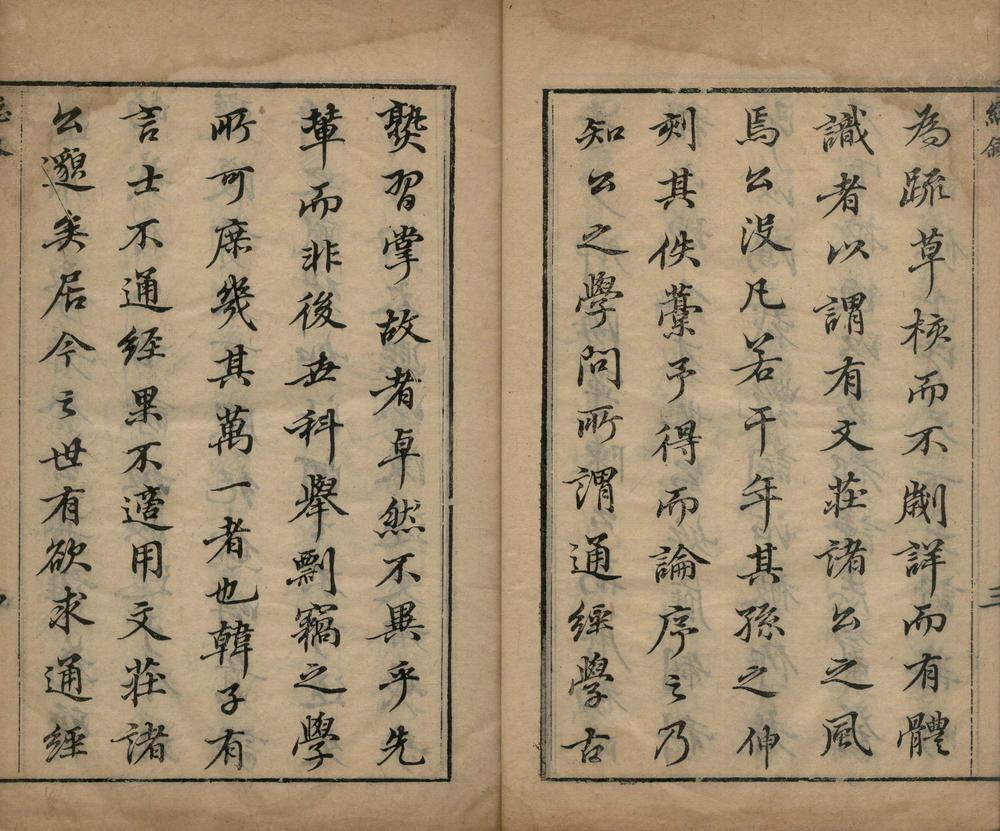 為疏草核而不劌詳而有體
識者以謂有文莊諸公之風
焉公沒凡若干年其孫之伸
刻其佚藁予得而論序之乃
知公之學問所謂通經學古
爕習掌故者卓然不異乎先
輩而非後世科舉剽竊之學
所可庶幾其萬一者也韓子有
言士不通經果不適用文莊諸
公邈矣居今之世有欲求通經